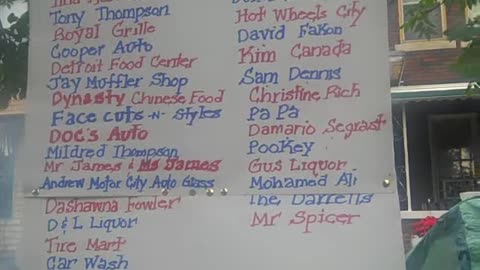 Tony Thompson
Royal Grille
Cooper Auto
Detroit Food Center
Jay Muffler Shop
Dynasty Chinese Food
Face cuts -N- Styles
Doc's Auto
Mildred Thompson
Mr James & Ms James
Andrew Motor City Auto Glass
Dashawna Fowler
D & L Liquor
Tire Mart
Car Wash
Hot Wheels City
David Fakon
Kim Canada
Sam Dennis
Christine Rich
Pa Pa
Damario Segrast
Pookey
Gus Liquor
Mohamed Ali
The Darrells
Mr Spicer